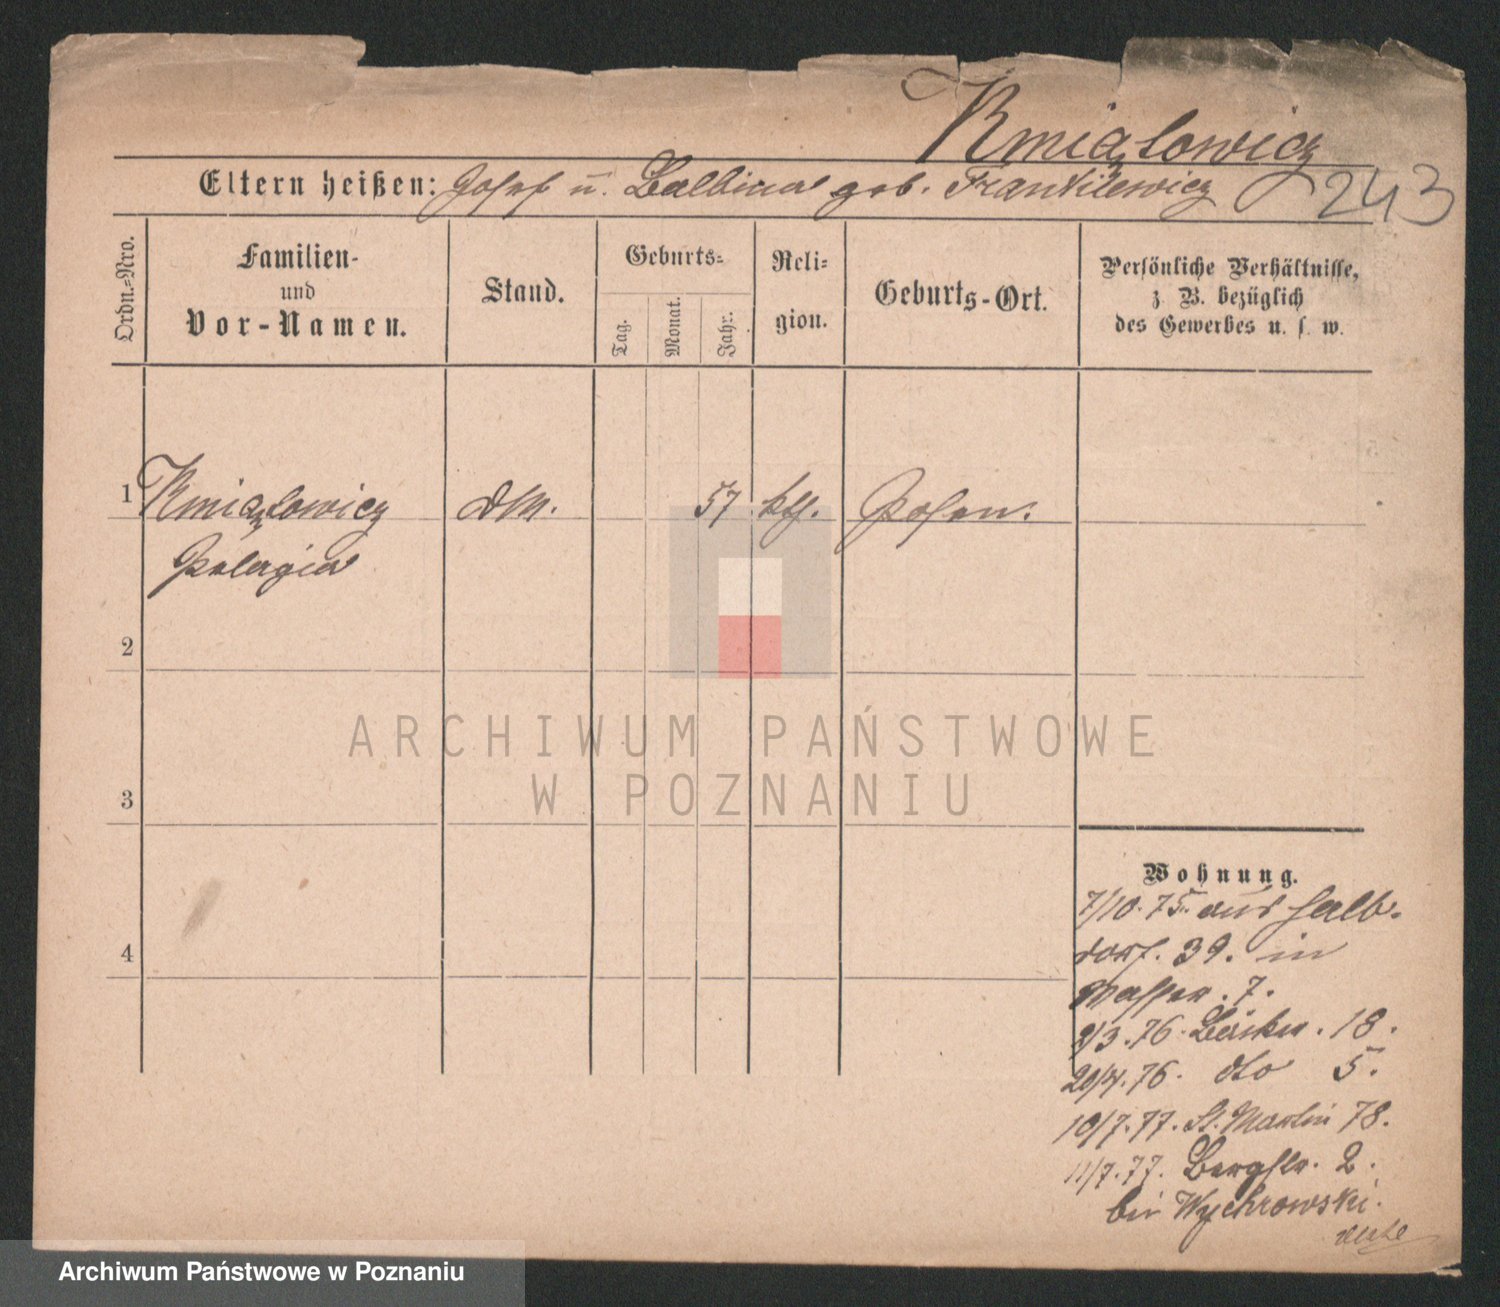 Kmiązlowicz
Eltern heißen: Josef u. Balbina geb. Frankiewicz
243
Ordn.-Nro.
Familien-
und
Vor-Namen.
Stand.
Geburts-
Tag.
Monat.
Jahr.
Reli-
gion.
Geburts-Ort.
Persönliche Verhältnisse,
z. B. bezüglich
des Gewerbes u. s. w.
1 Kmiązlowicz DM. 57 kth. Posen.
Pelagia
2
3
4
Wohnung.
7/10.75. aus Halb-
dorf. 39. in
Wasser. 7.
2/3.76. Bäcker. 18.
20/4.76. dto 5.
10/7.77. St. Martin 78.
11/7.77. Bergstr. 2.
bei Wychrowski.
ARCHIWUM PAŃSTWOWE
W POZNANIU
Archiwum Państwowe w Poznaniu